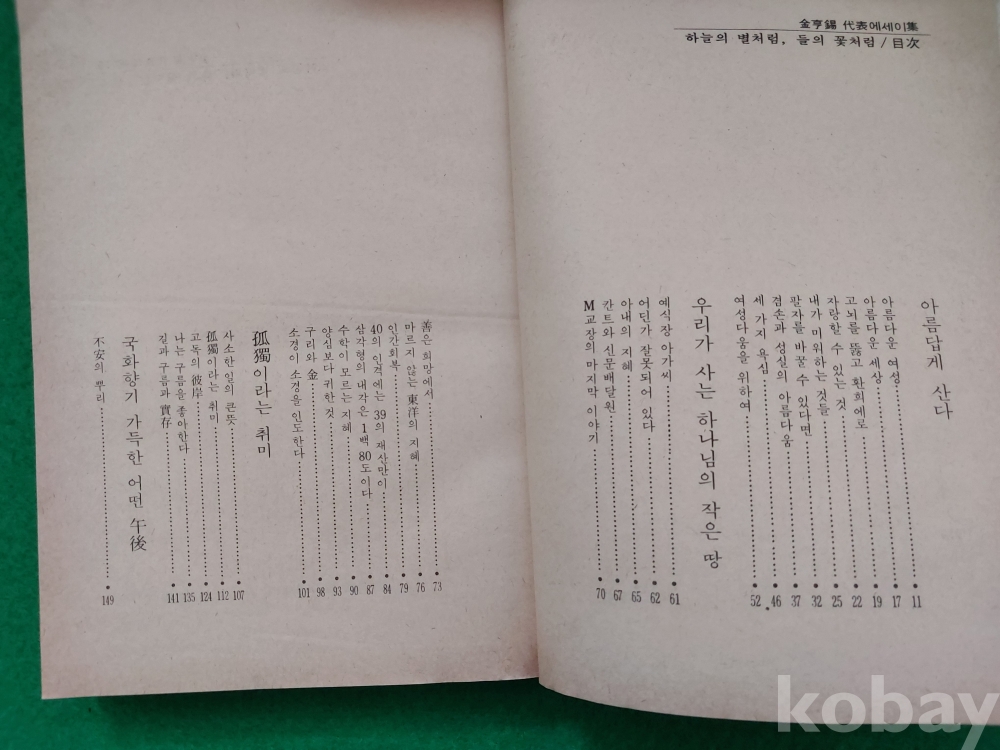 金亨錫 代表에세이集
하늘의 별처럼, 들의 꽃처럼 / 目次
아름답게 산다
아름다운 여성 11
아름다운 세상 17
고뇌를 뚫고 환희에로 19
자랑할 수 있는 것 22
내가 미워하는 것들 25
팔자를 바꿀 수 있다면 32
겸손과 성실의 아름다움 37
세 가지 욕심 46
여성다움을 위하여 52
우리가 사는 하나님의 작은 땅
예식장 아가씨 61
어딘가 잘못되어 있다 62
아내의 지혜 65
칸트와 신문배달원 67
M교장의 마지막 이야기 70
善은 희망에서 73
마르지 않는 東洋의 지혜 76
인간회복 79
40의 인격에는 39의 재산만이 84
삼각형의 내각은 1백 80도이다 87
수학이 모르는 지혜 90
양심보다 귀한 것 93
구리와 金 98
소경이 소경을 인도한다 101
孤獨이라는 취미
사소한 일의 큰 뜻 107
孤獨이라는 취미 112
고독의 彼岸 124
나는 구름을 좋아한다 135
길과 구름과 實存 141
국화향기 가득한 어떤 午後
不安의 뿌리 149
kobay